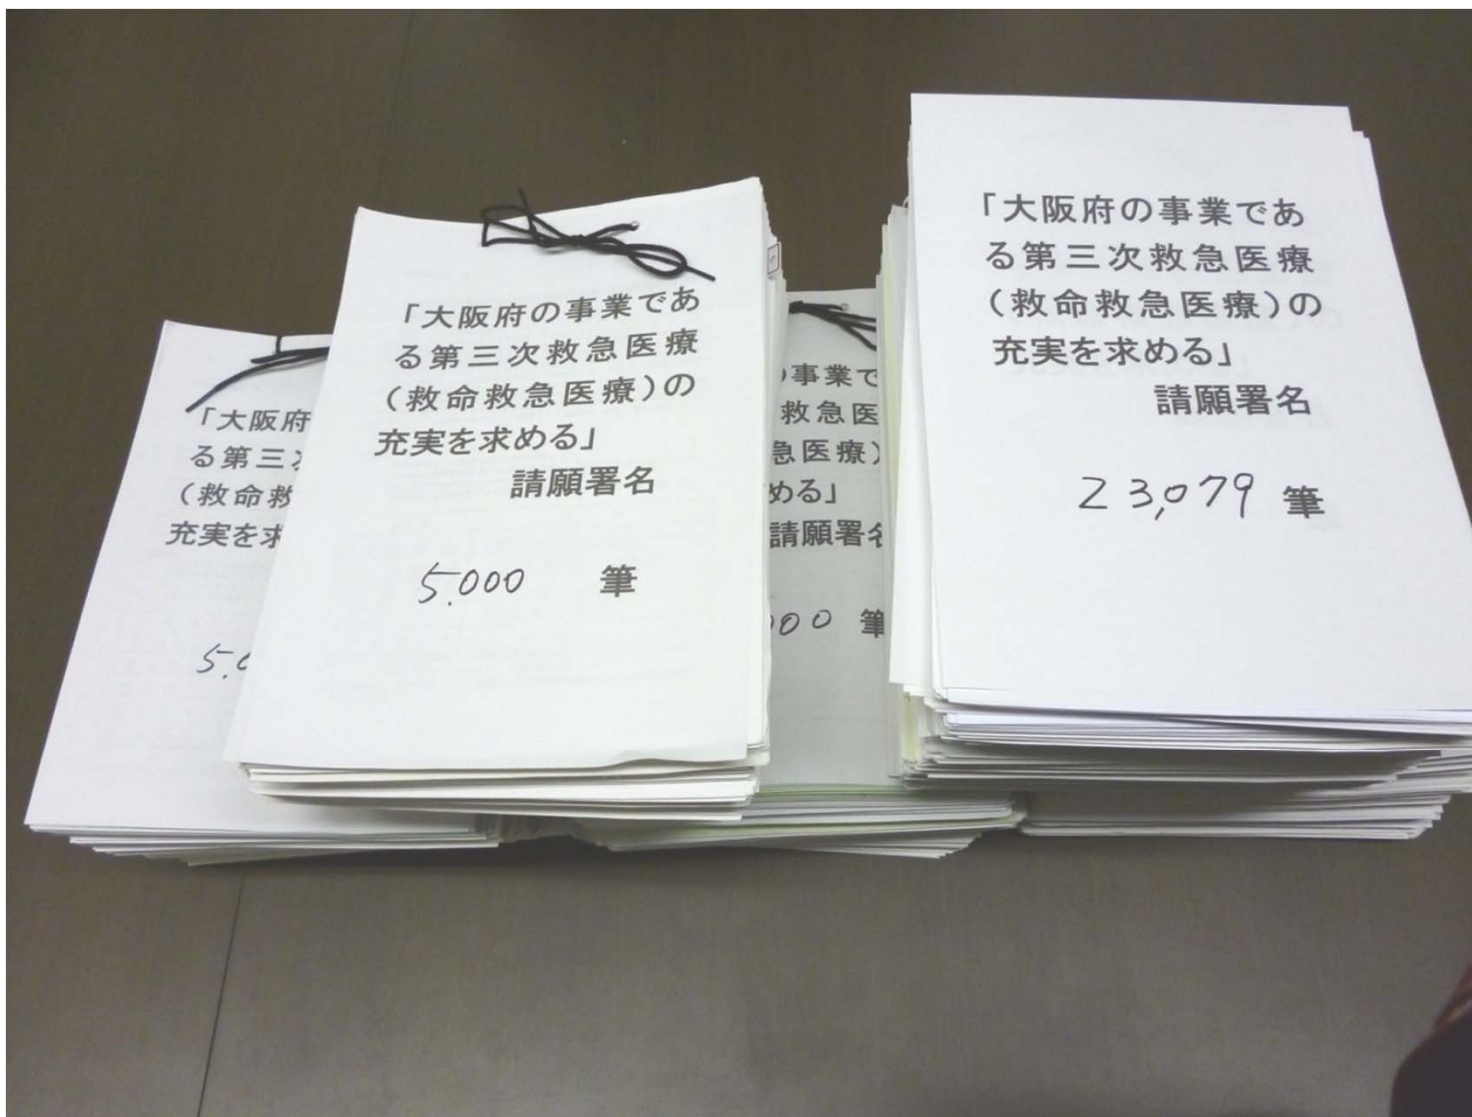 「大阪府
る第三
（救命救
充実を求
5.0
「大阪府の事業であ
る第三次救急医療
（救命救急医療）の
充実を求める」
請願署名
5.000 筆
の事業で
救急医
急医療）
める」
請願署名
000 筆
「大阪府の事業であ
る第三次救急医療
（救命救急医療）の
充実を求める」
請願署名
23,079 筆